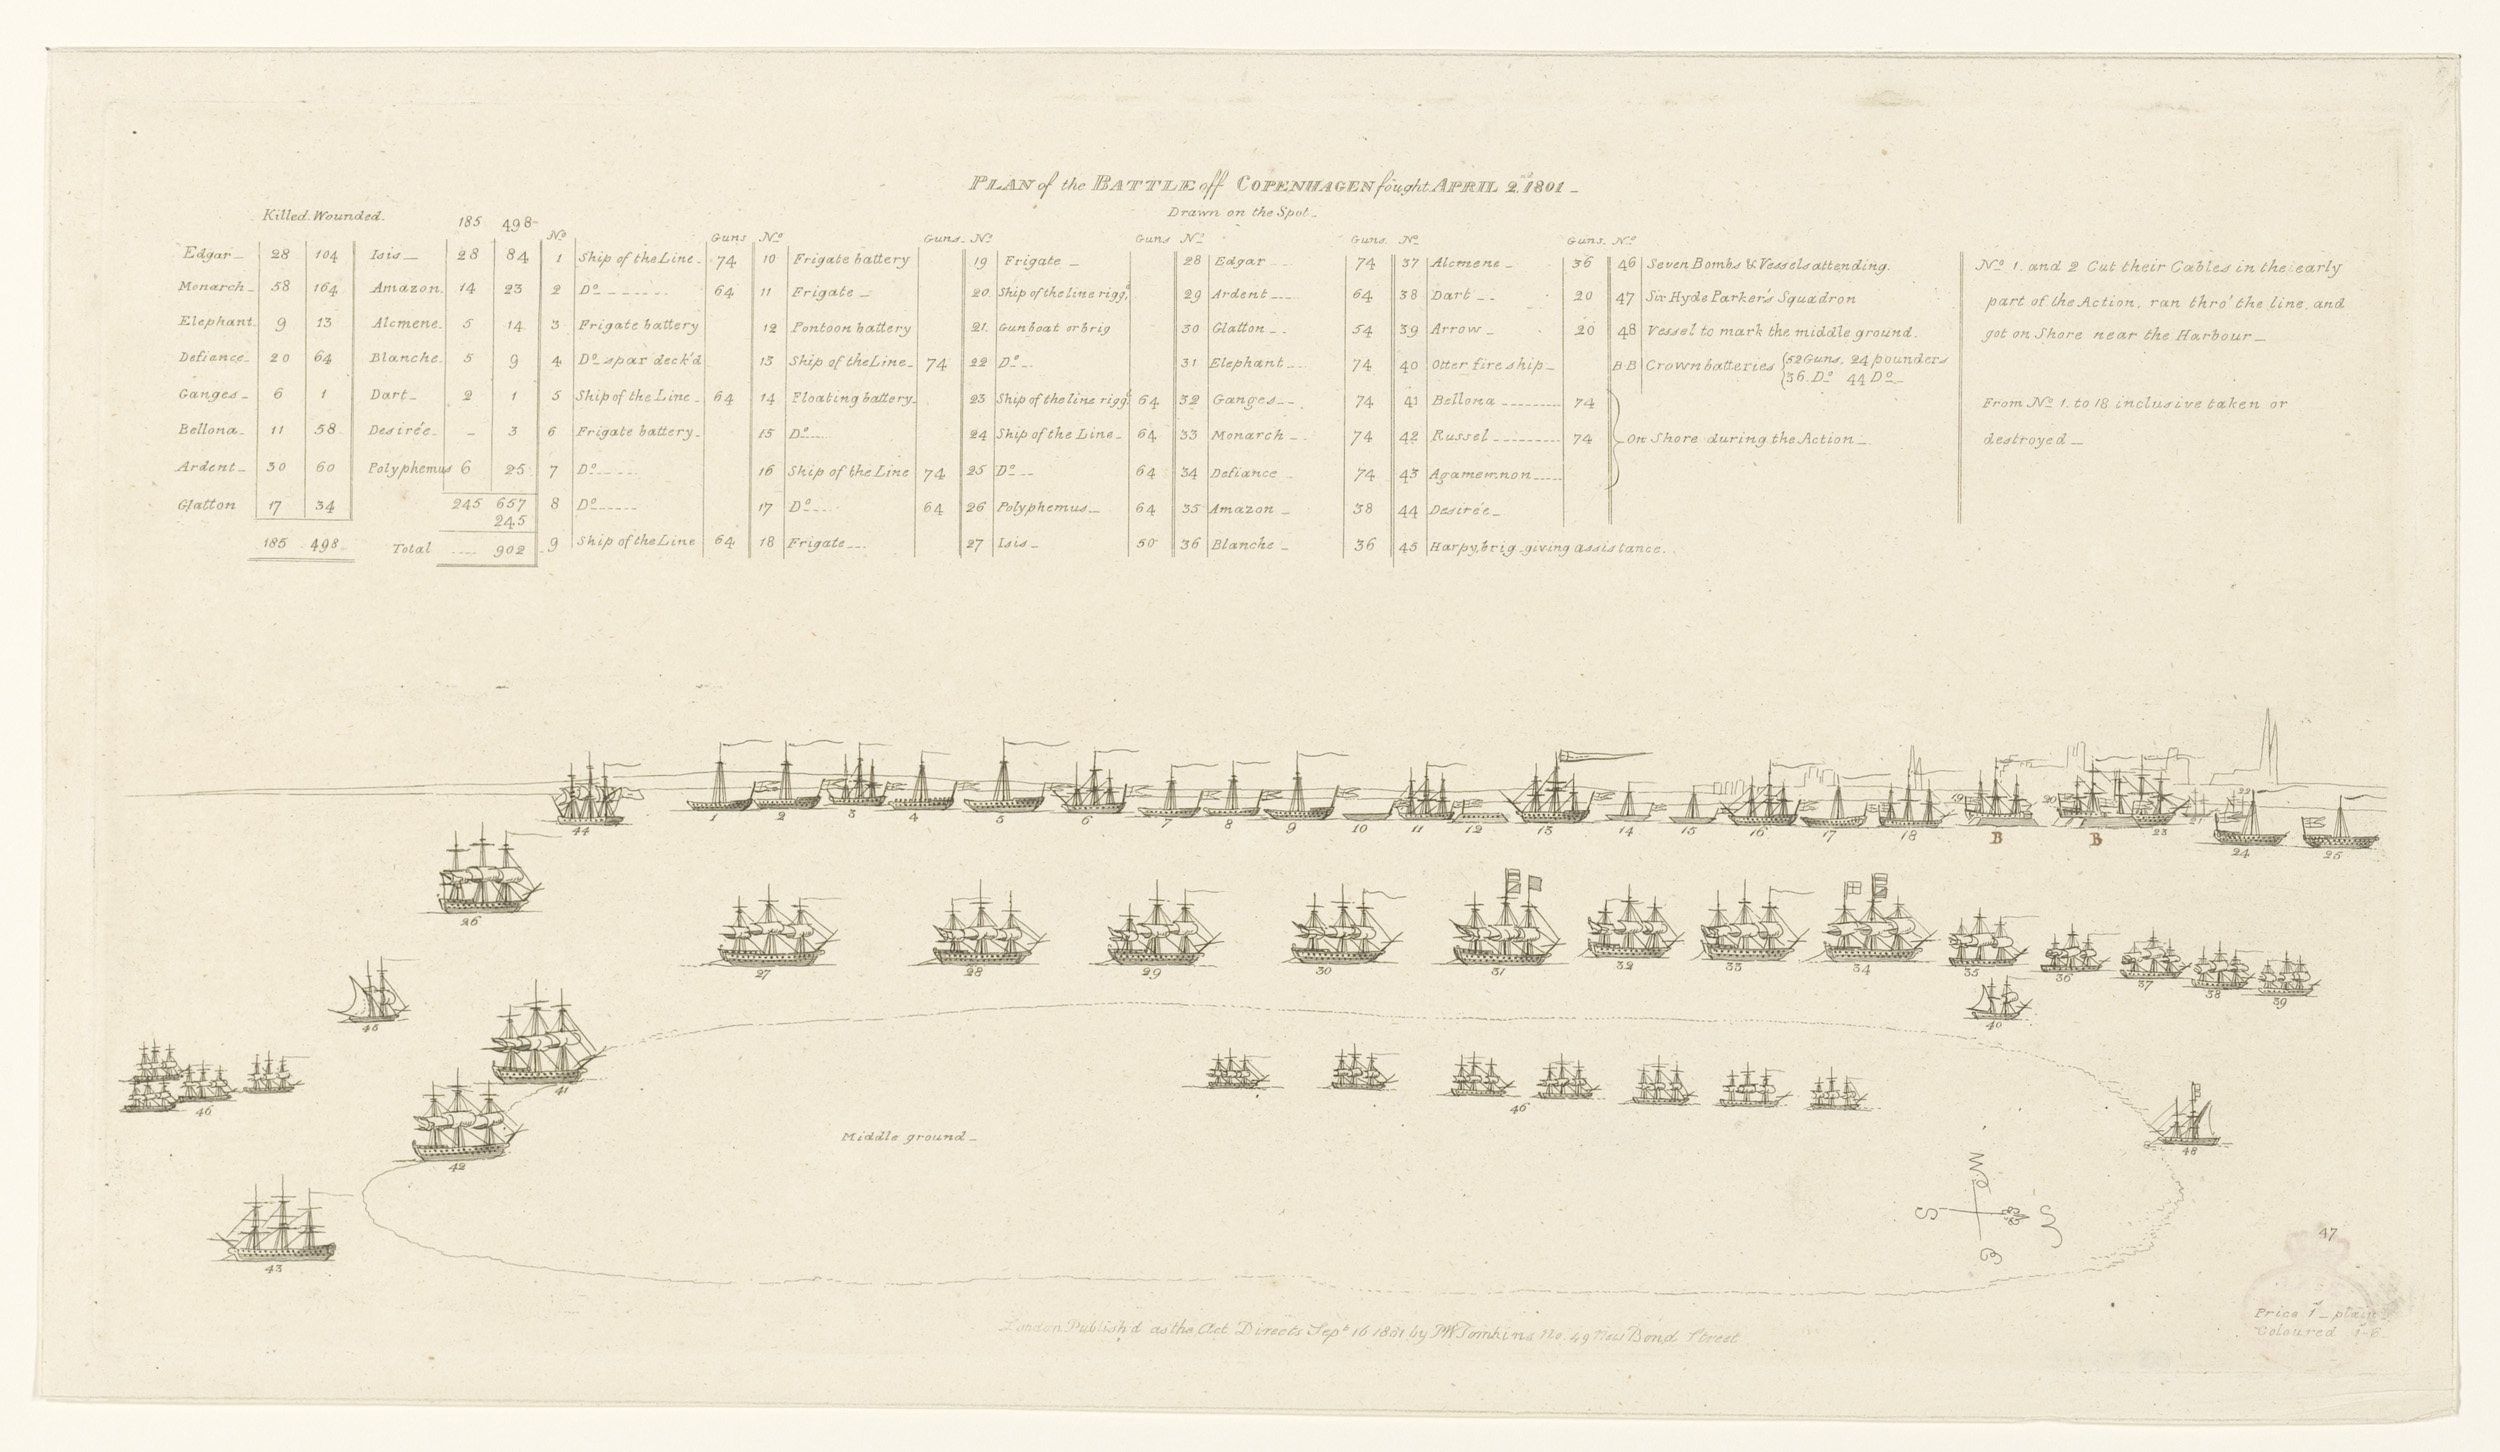 PLAN of the BATTLE off COPENHAGEN fought APRIL 2.nd 1801_
Drawn on the Spot_
Killed. Wounded.
Edgar_ 28 104
Monarch_ 58 164
Elephant. 9 13
Defiance_ 20 64
Ganges_ 6 1
Bellona_ 11 58
Ardent_ 30 60
Glatton 17 34
185 498
185 498
Isis_ 28 84
Amazon. 14 23
Alcmene. 5 14
Blanche. 5 9
Dart_ 2 1
Desirée_ _ 3
Polyphemus 6 25
245 657
245
Total .... 902
No Guns
1 Ship of the Line_ 74
2 Do_ 64
3 Frigate battery
4 Do_ spar deck'd
5 Ship of the Line_ 64
6 Frigate battery_
7 Do
8 Do
9 Ship of the Line 64
No Guns_
10 Frigate battery
11 Frigate_
12 Pontoon battery
13 Ship of the Line_ 74
14 Floating battery_
15 Do
16 Ship of the Line 74
17 Do 64
18 Frigate
No Guns
19 Frigate_
20. Ship of the line rigg.d
21. Gun boat or brig
22 Do
23 Ship of the line rigg.d 64
24 Ship of the Line_ 64
25 Do 64
26 Polyphemus_ 64
27 Isis_ 50
No Guns.
28 Edgar 74
29 Ardent 64
30 Glatton 54
31 Elephant 74
32 Ganges 74
33 Monarch 74
34 Defiance 74
35 Amazon_ 38
36 Blanche_ 36
No Guns_
37 Alcmene_ 36
38 Dart 20
39 Arrow_ 20
40 Otter fire ship_
41 Bellona 74
42 Russel 74
43 Agamemnon
44 Desirée_
45 Harpy, brig_giving assistance.
On Shore during the Action_
No
46 Seven Bombs & Vessels attending.
47 Sir Hyde Parker's Squadron
48 Vessel to mark the middle ground.
B.B Crown batteries {52 Guns, 24 pounders
{36. Do 44 Do_
No 1. and 2 Cut their Cables in the early
part of the Action, ran thro' the line, and
got on Shore near the Harbour_
From No 1. to 18 inclusive taken or
destroyed_
44 1 2 3 4 5 6 7 8 9 10 11 12 13 14 15 16 17 18 19 B 20 B 23 21 22 24 25
26 27 28 29 30 31 32 33 34 35 36 37 38 39
40
45 41 46 42 43
46
48
Middle ground_
W
S N
E
47
Price 1s_ plain
Coloured 1-6
London Publish'd as the Act Directs Sept 16 1801 by P.W. Tomkins No. 49 New Bond Street